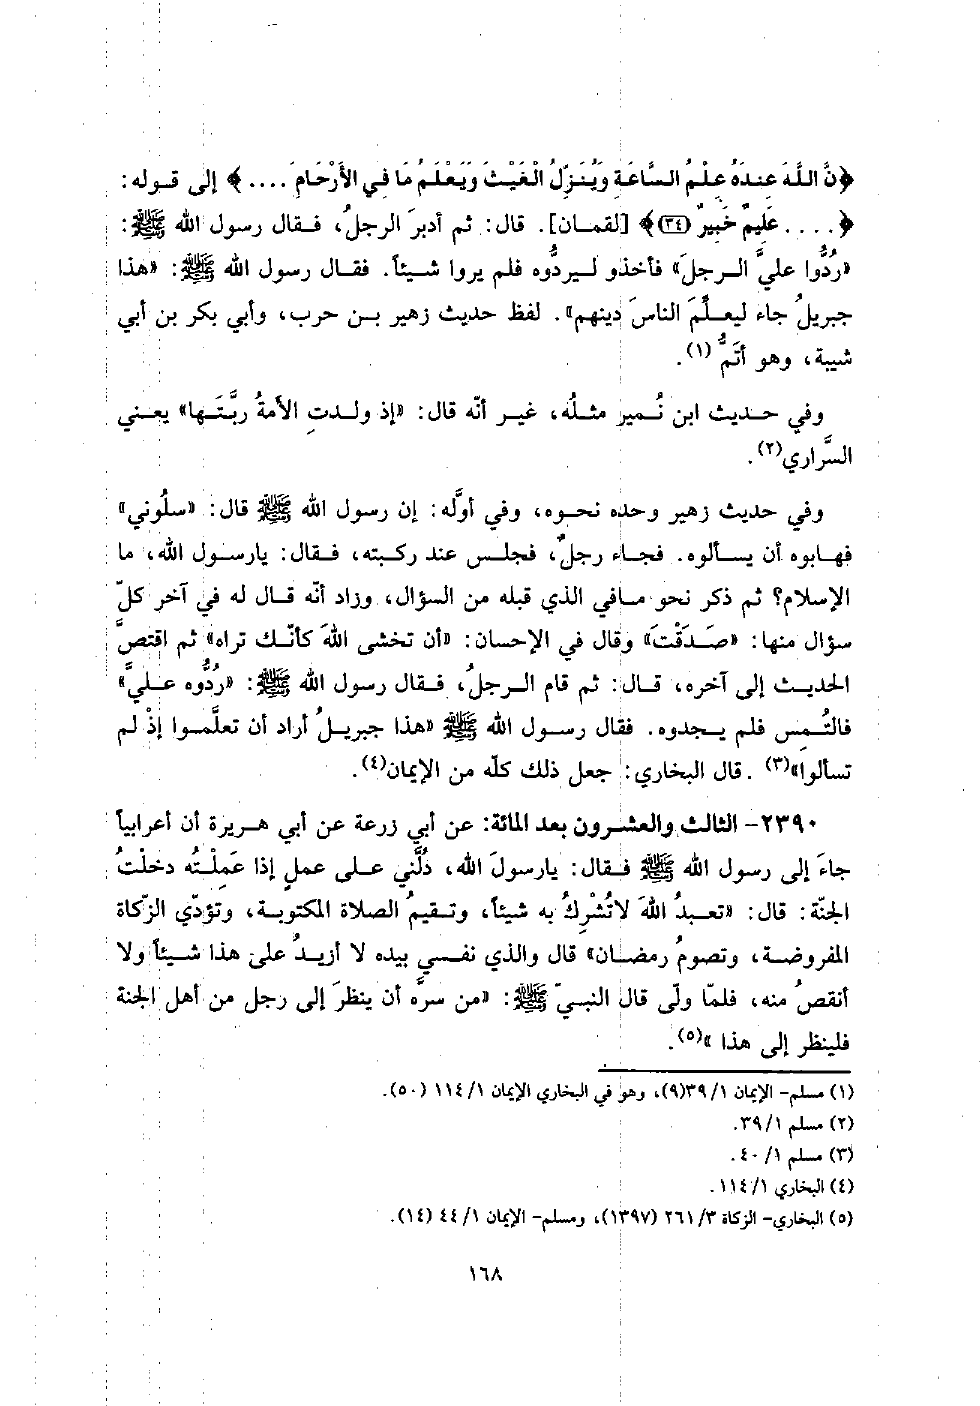 ﴿نَّ اللَّهَ عِندَهُ عِلْمُ السَّاعَةِ وَيُنَزِّلُ الْغَيْثَ وَيَعْلَمُ مَا فِي الأَرْحَامِ ....﴾ إلى قوله:
﴿.... عَلِيمٌ خَبِيرٌ (٣٤)﴾ [لقمان]. قال: ثم أدبرَ الرجلُ، فقال رسول الله ﷺ:
«رُدُّوا عليَّ الرجلَ» فأخذو ليردُّوه فلم يروا شيئاً. فقال رسول الله ﷺ: «هذا
جبريلُ جاء ليعلِّمَ الناسَ دينهم». لفظ حديث زهير بن حرب، وأبي بكر بن أبي
شيبة، وهو أتَمُّ (١).
وفي حديث ابن نُمير مثلُه، غير أنّه قال: «إذ ولدتِ الأمةُ ربَّتَها» يعني
السَّراري(٢).
وفي حديث زهير وحده نحوه، وفي أوَّله: إن رسول الله ﷺ قال: «سلُوني»
فهابوه أن يسألوه. فجاء رجلٌ، فجلس عند ركبته، فقال: يارسول الله، ما
الإسلام؟ ثم ذكر نحو مافي الذي قبله من السؤال، وزاد أنّه قال له في آخر كلّ
سؤال منها: «صَدَقْتَ» وقال في الإحسان: «أن تخشى اللهَ كأنّك تراه» ثم اقتصَّ
الحديث إلى آخره، قال: ثم قام الرجلُ، فقال رسول الله ﷺ: «ردُّوه عليَّ»
فالتُمِس فلم يجدوه. فقال رسول الله ﷺ «هذا جبريلُ أراد أن تعلَّموا إذْ لم
تسألوا»(٣) . قال البخاري: جعل ذلك كلّه من الإيمان(٤).
٢٣٩٠- الثالث والعشرون بعد المائة: عن أبي زرعة عن أبي هريرة أن أعرابياً
جاءَ إلى رسول الله ﷺ فقال: يارسولَ الله، دُلَّني على عملٍ إذا عَمِلْتُه دخلْتُ
الجنّة: قال: «تعبدُ اللهَ لاتُشْرِكُ به شيئاً، وتقيمُ الصلاة المكتوبة، وتؤدّي الزّكاة
المفروضة، وتصومُ رمضان» قال والذي نفسي بيده لا أزيدُ على هذا شيئاً ولا
أنقصُ منه، فلمّا ولّى قال النبيّ ﷺ: «من سرَّه أن ينظرَ إلى رجل من أهل الجنة
فلينظر إلى هذا »(٥).
(١) مسلم- الإيمان ٣٩/١(٩)، وهو في البخاري الإيمان ١١٤/١ (٥٠).
(٢) مسلم ٣٩/١.
(٣) مسلم ٤٠/١.
(٤) البخاري ١١٤/١.
(٥) البخاري- الزكاة ٢٦١/٣ (١٣٩٧)، ومسلم- الإيمان ٤٤/١ (١٤).
١٦٨